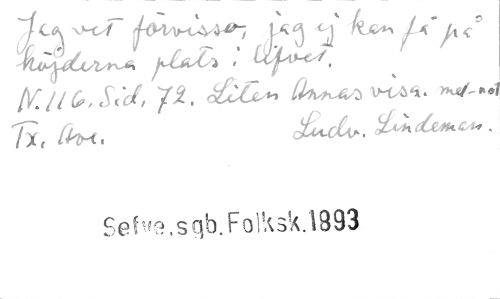 Jag vet förvisso, jag ej kan få på
höjderna plats i lifvet.
N. 116. Sid. 72. Liten Annas visa. mel-not
Tx. Ave. Ludv. Lindeman.
Sefve, sgb. Folksk. 1893